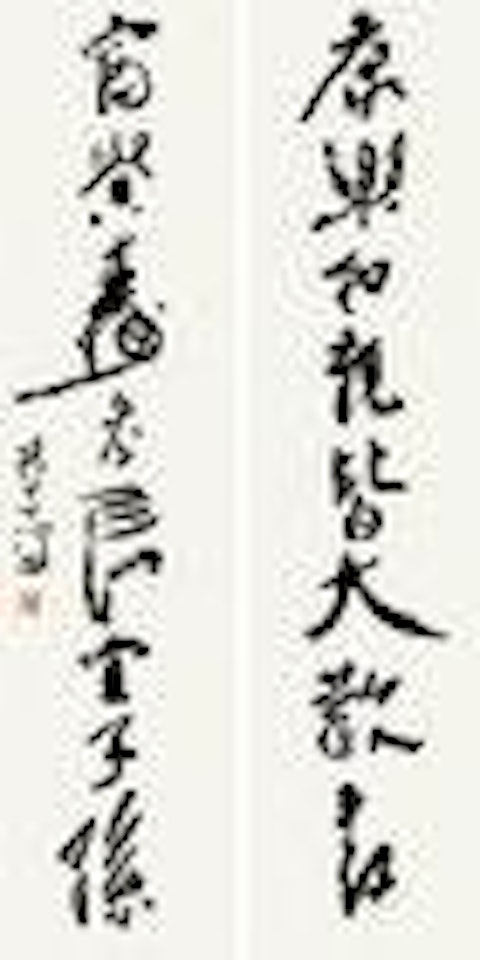 康樂和親皆大歡喜
富貴壽考長宜子孫